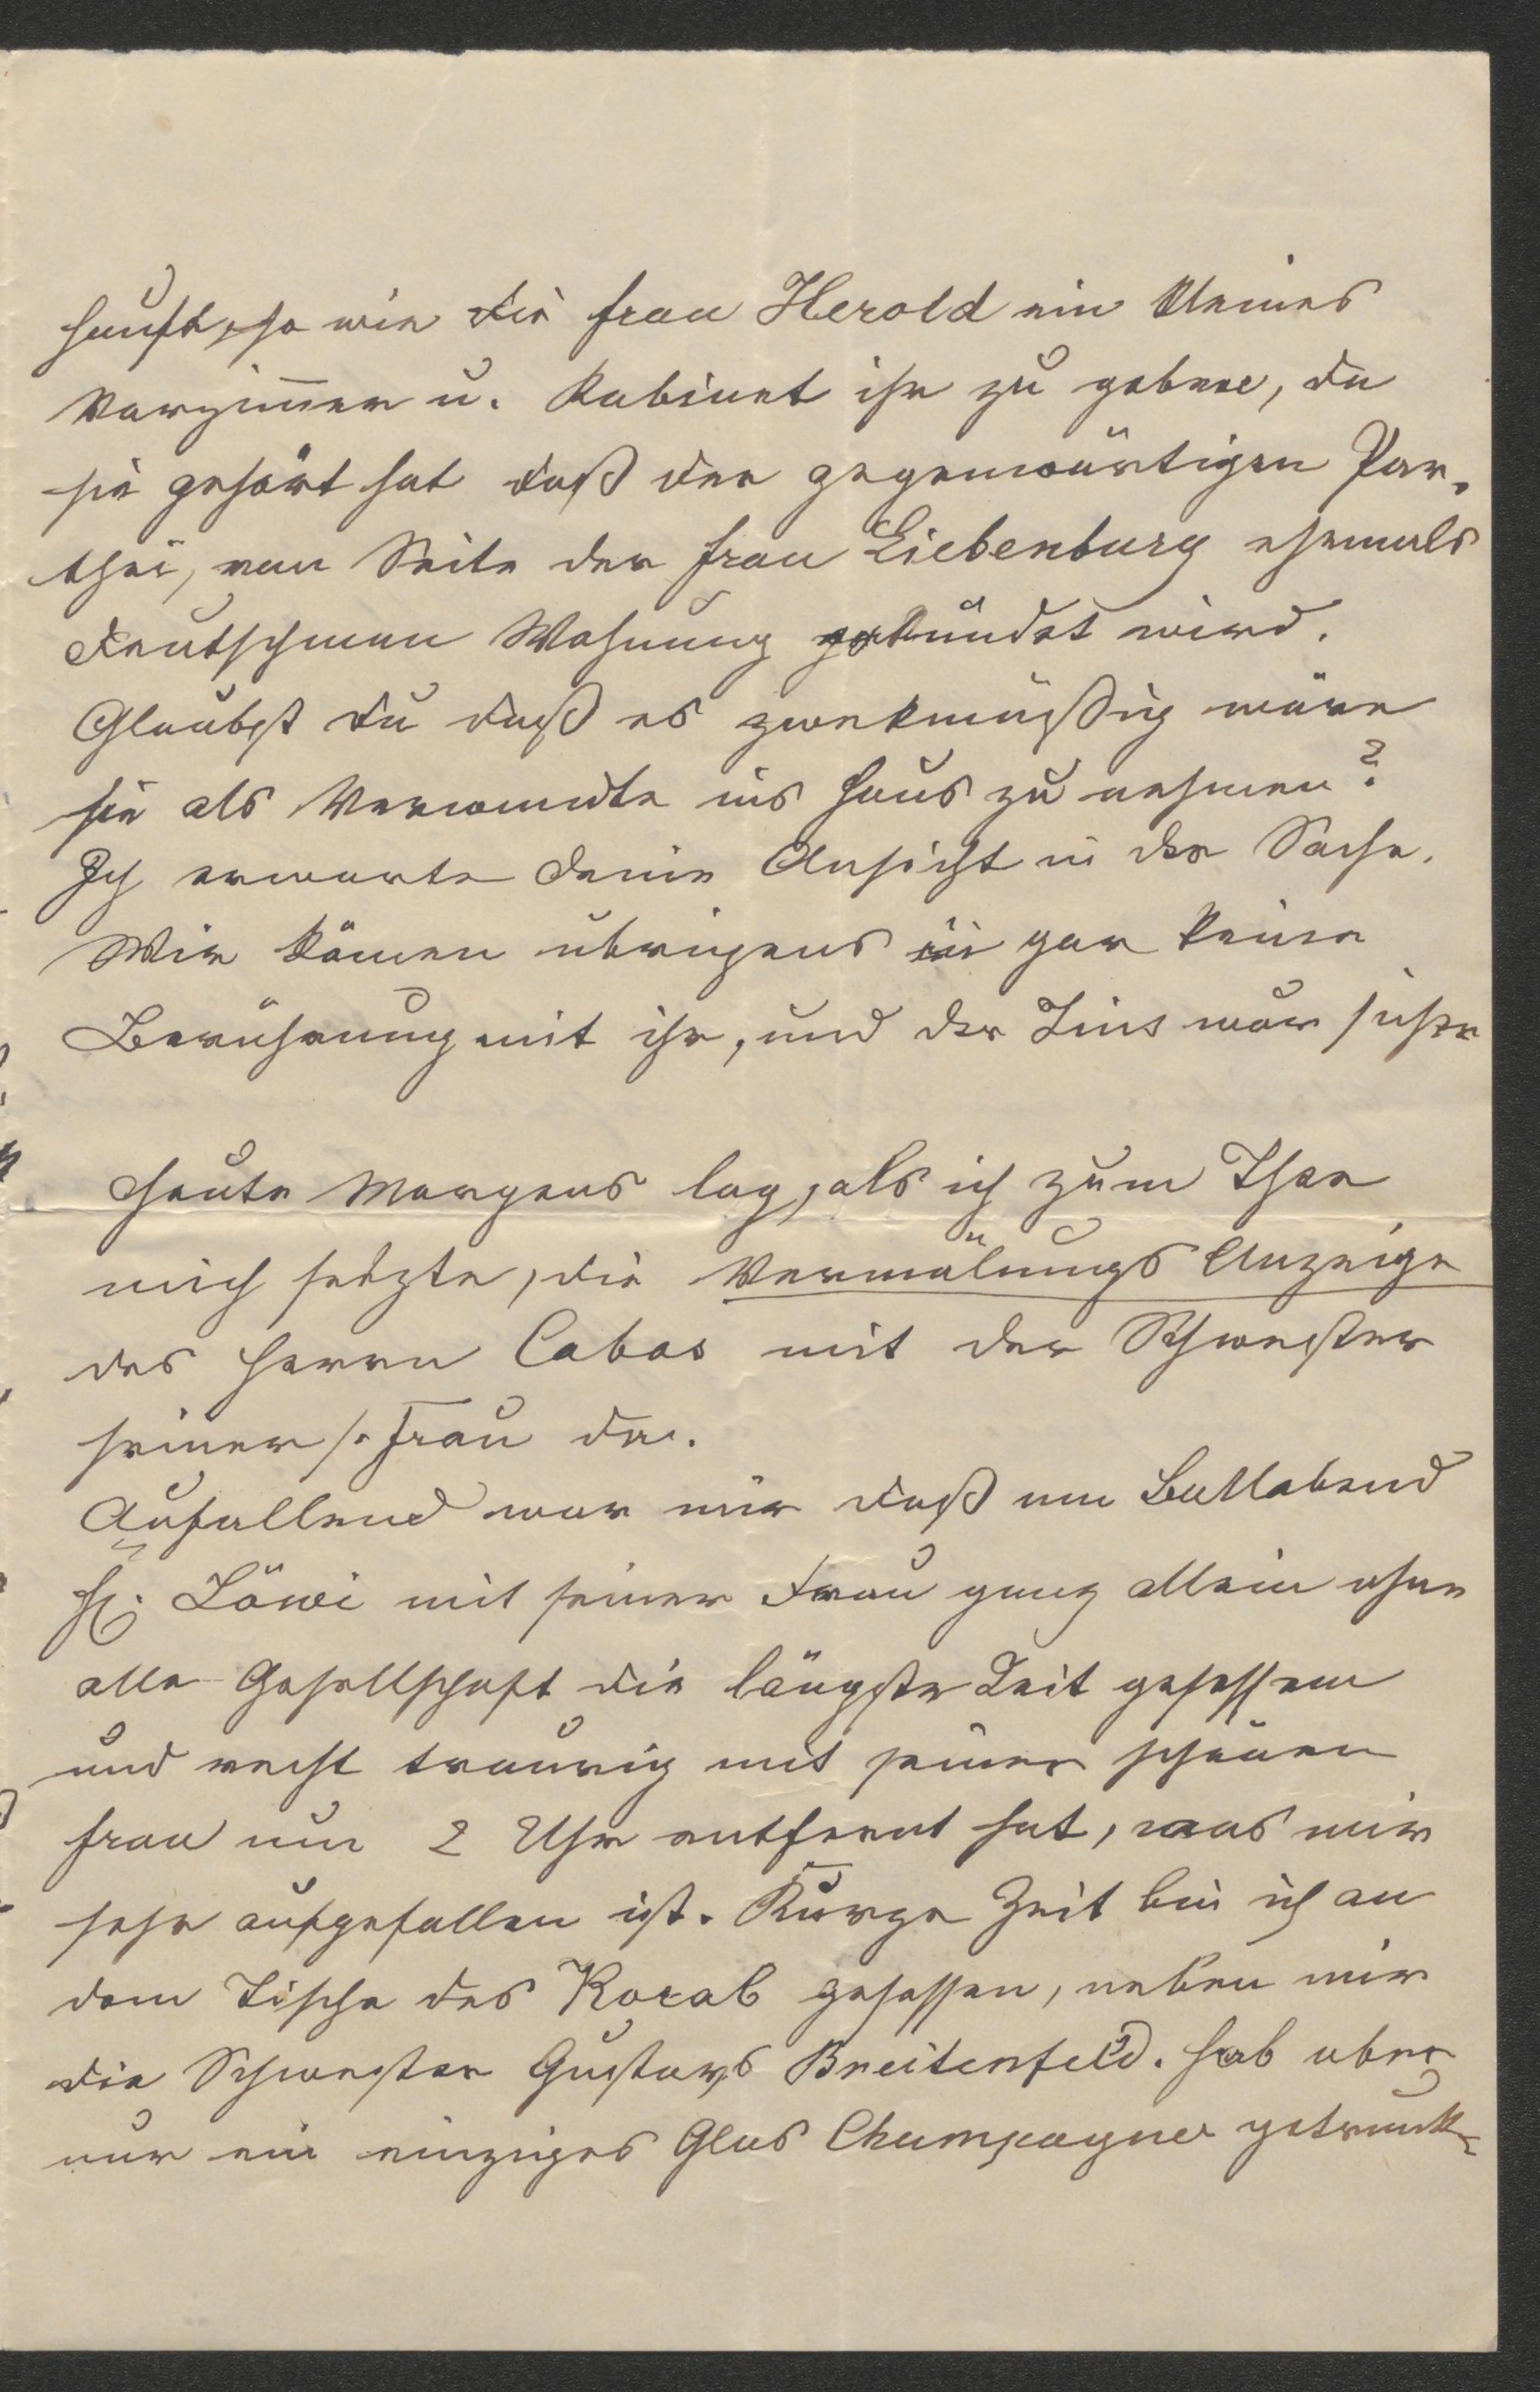 sucht, so wie die Frau Herold ein kleines
Vorzimmer u. Kabinet ihr zu geben, da
sie gehört hat daß der gegenwärtigen Par-
thei, von Seite der Frau Liebenburg ehemals
Deutschman Wohnung gekündet wird.
Glaubst du daß es zwekmäßig wäre
sie als Verwandte ins Haus zu nehmen?
Ich erwarte deine Ansicht in der Sache.
Wir kämen übrigens in gar keine
Berührung mit ihr, und der Zins wär sicher
Heute Morgens lag, als ich zum Thee
mich setzte, die Vermälungs Anzeige
des Herrn Cabos mit der Schwester
seiner s. Frau da.
Aufallend war mir daß am Ballabend
H. Löwi mit seiner Frau ganz allein ohne
alle Gesellschaft die längste Zeit gesessen
und recht traurig mit seiner schönen
Frau um 2 Uhr entfernt hat, was mir
sehr aufgefallen ist. Kurze Zeit bin ich an
dem Tische des Korab gesessen, neben mir
die Schwester Gustavs Breitenfeld. Hab aber
nur ein einziges Glas Champagner getrunk